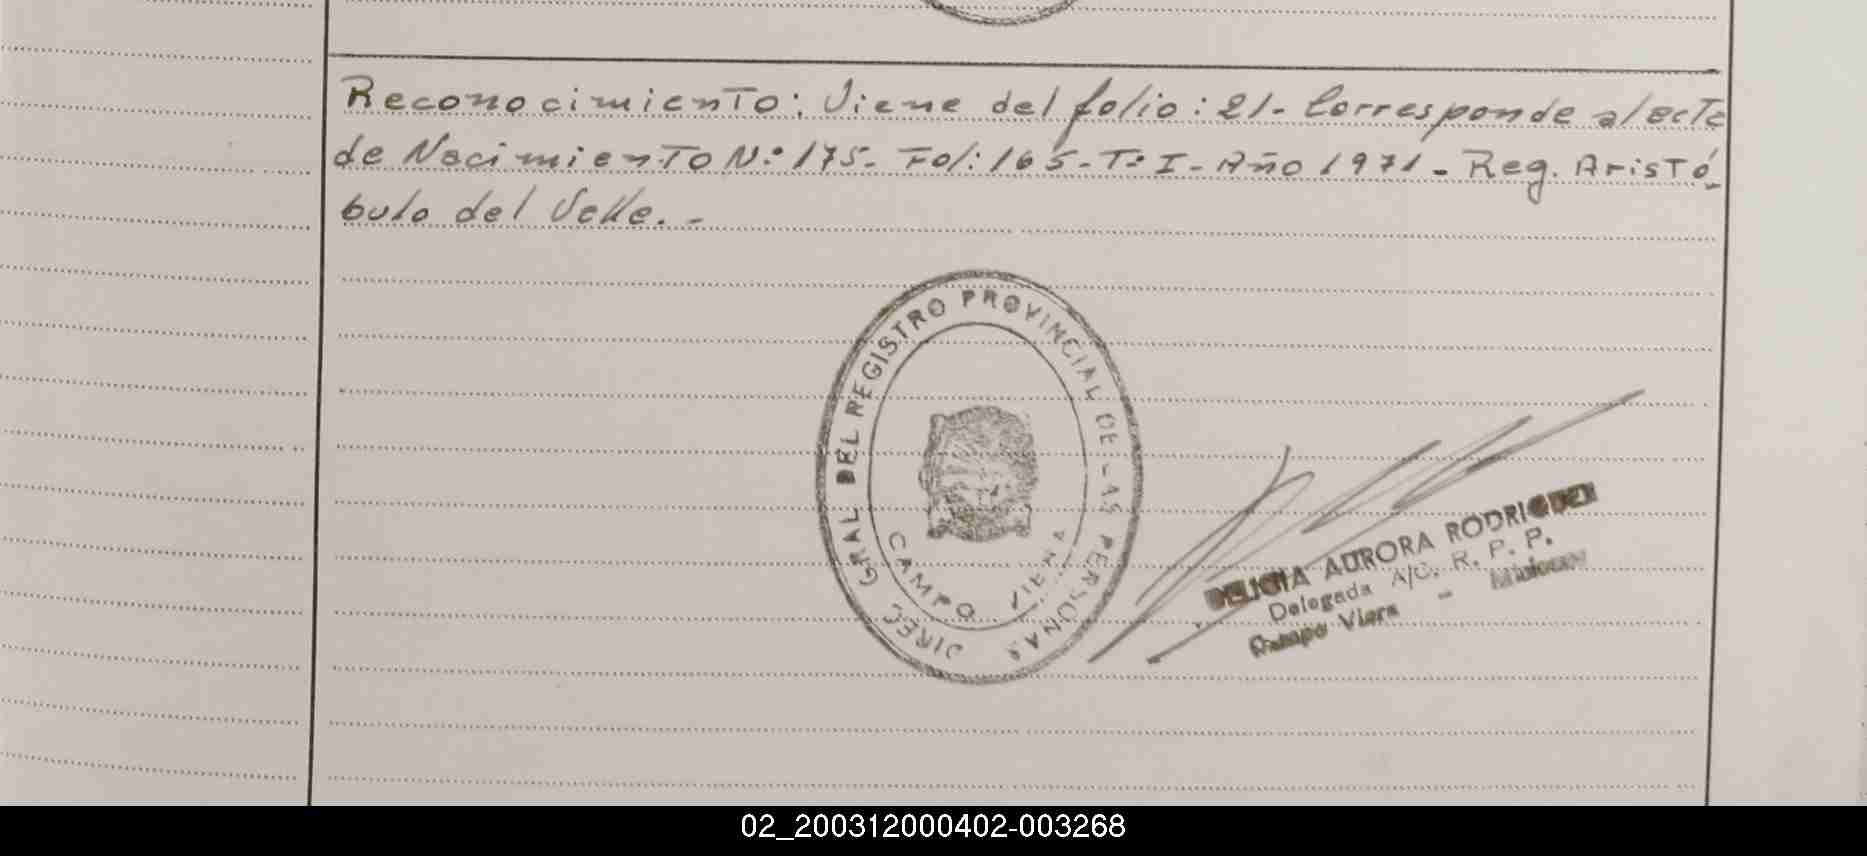 Reconocimiento: Viene del folio: 21- Corresponde al acta
de Nacimiento N:º 175- Fol: 165-Tº I- Año 1971- Reg. Aristó-
bulo del Valle.-
DIREC GRAL DEL REGISTRO PROVINCIAL DE LAS PERSONAS
CAMPO VIERA
DELICIA AURORA RODRIGUEZ
Delegada A/C. R. P. P.
Campo Viera - Misiones
02_200312000402-003268